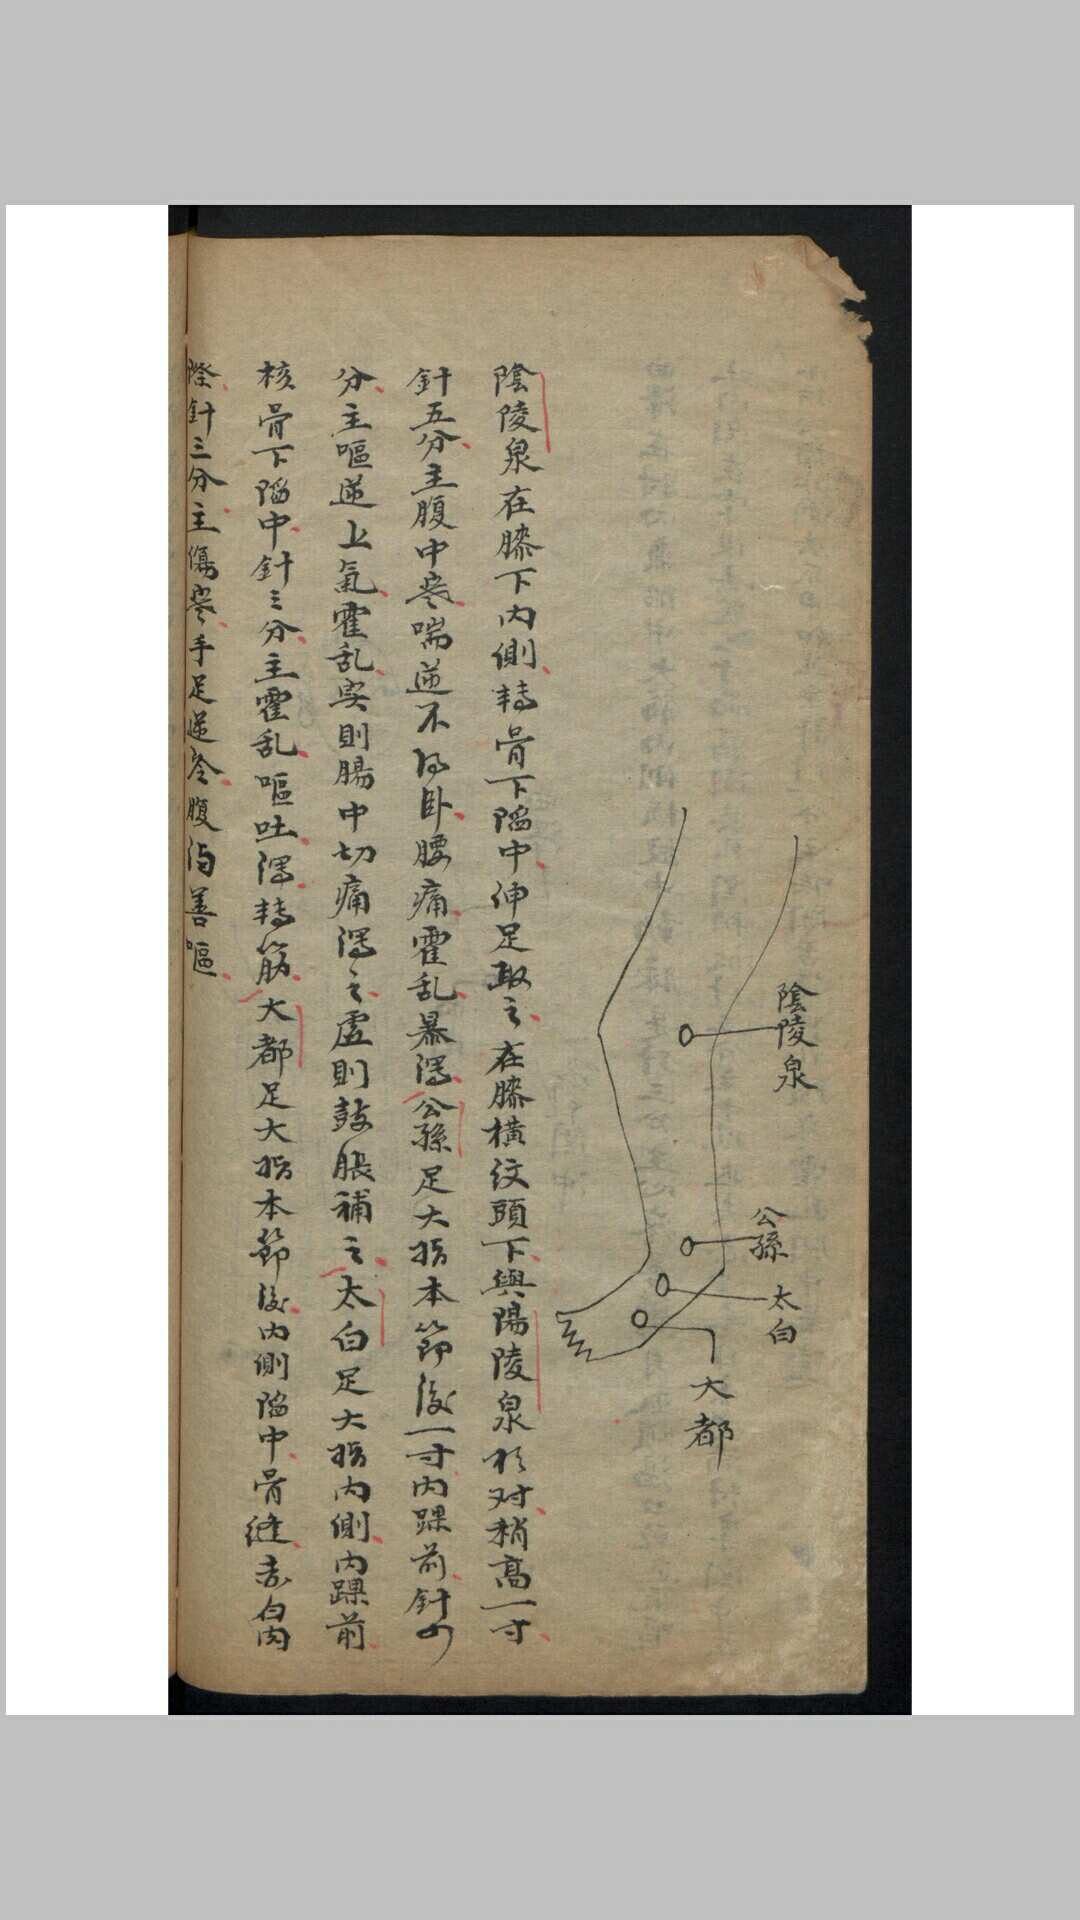 陰陵泉
公孫
太白
大都
陰陵泉在膝下内側轉骨下陷中伸足取之在膝横紋頭下與陽陵泉相对稍高一寸
針五分主腹中寒喘逆不得卧腰痛霍乱暴瀉公孫足大指本節後一寸内踝前針四
分主嘔逆上氣霍乱实則腸中切痛瀉之虚則鼓脹補之太白足大指内側内踝前
核骨下陷中針三分主霍乱嘔吐瀉轉筋大都足大指本節後内側陷中骨縫赤白肉
際針三分主傷寒手足逆冷腹满善嘔